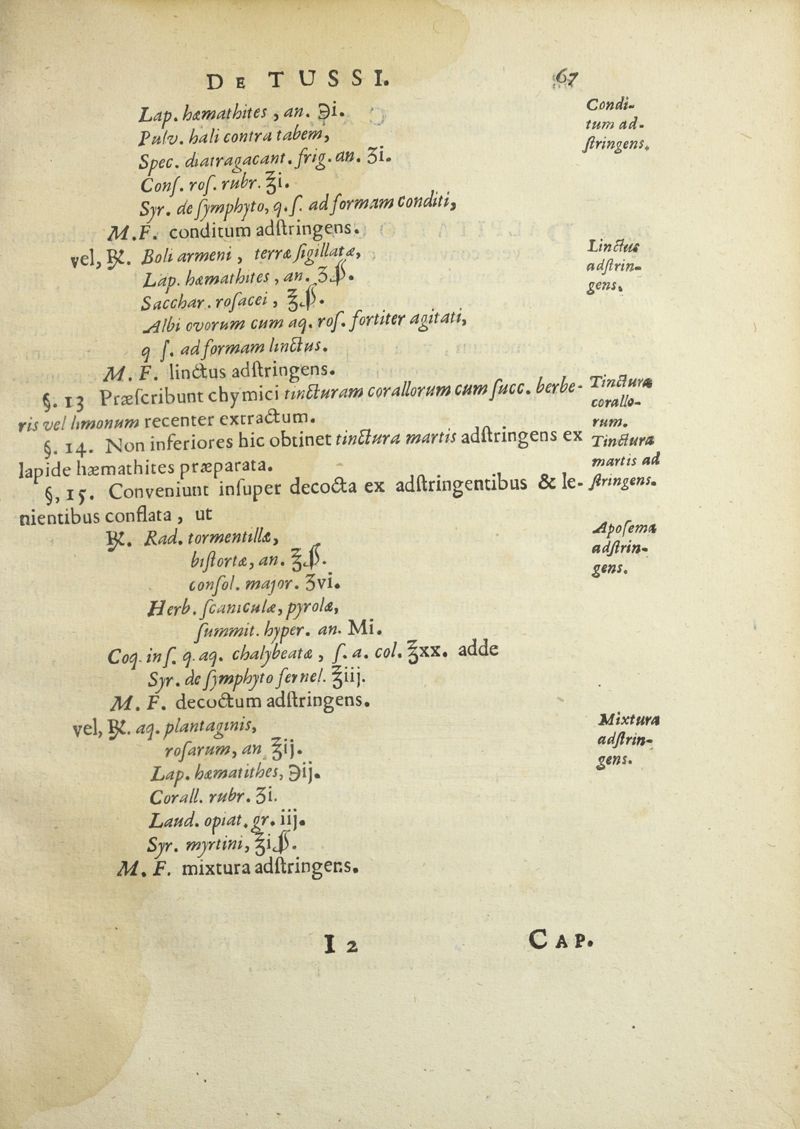 DE TUSSI. 67
Lap. hæmathites, an. ℈i.
Pulv. hali contra tabem,
Spec. diatragacant. frig. an. ʒi.
Conſ. roſ. rubr. ℥i.
Syr. de ſymphyto, q. ſ. ad formam conditi,
M.F. conditum adſtringens.
Condi-
tum ad-
ſtringens.
vel, ℞. Boli armeni, terræ ſigillatæ,
Lap. hæmathites, an. ʒß.
Sacchar. roſacei, ℥ß.
Albi ovorum cum aq. roſ. fortiter agitati,
q ſ. ad formam linctus.
M. F. linctus adſtringens.
Linctus
adſtrin-
gens.
§. 13 Præſcribunt chymici tincturam corallorum cum ſucc. berbe-
ris vel limonum recenter extractum.
Tinctura
corallo-
rum.
§. 14. Non inferiores hic obtinet tinctura martis adſtringens ex
lapide hæmathites præparata.
Tinctura
martis ad
ſtringens.
§, 15. Conveniunt inſuper decocta ex adſtringentibus & le-
nientibus conflata, ut
℞. Rad. tormentillæ,
biſtortæ, an. ℥ß.
conſol. major. ʒvi.
Herb. ſcaniculæ, pyrolæ,
ſummit. hyper. an. Mi.
Coq. in ſ. q. aq. chalybeatæ, ſ. a. col. ℥xx. adde
Syr. de ſymphyto fernel. ℥iij.
M. F. decoctum adſtringens.
Apoſema
adſtrin-
gens.
vel, ℞. aq. plantaginis,
roſarum, an ℥ij.
Lap. hæmatithes, ℈ij.
Corall. rubr. ʒi.
Laud. opiat. gr. iij.
Syr. myrtini, ℥iß.
M. F. mixtura adſtringens.
Mixtura
adſtrin-
gens.
I 2 CAP.